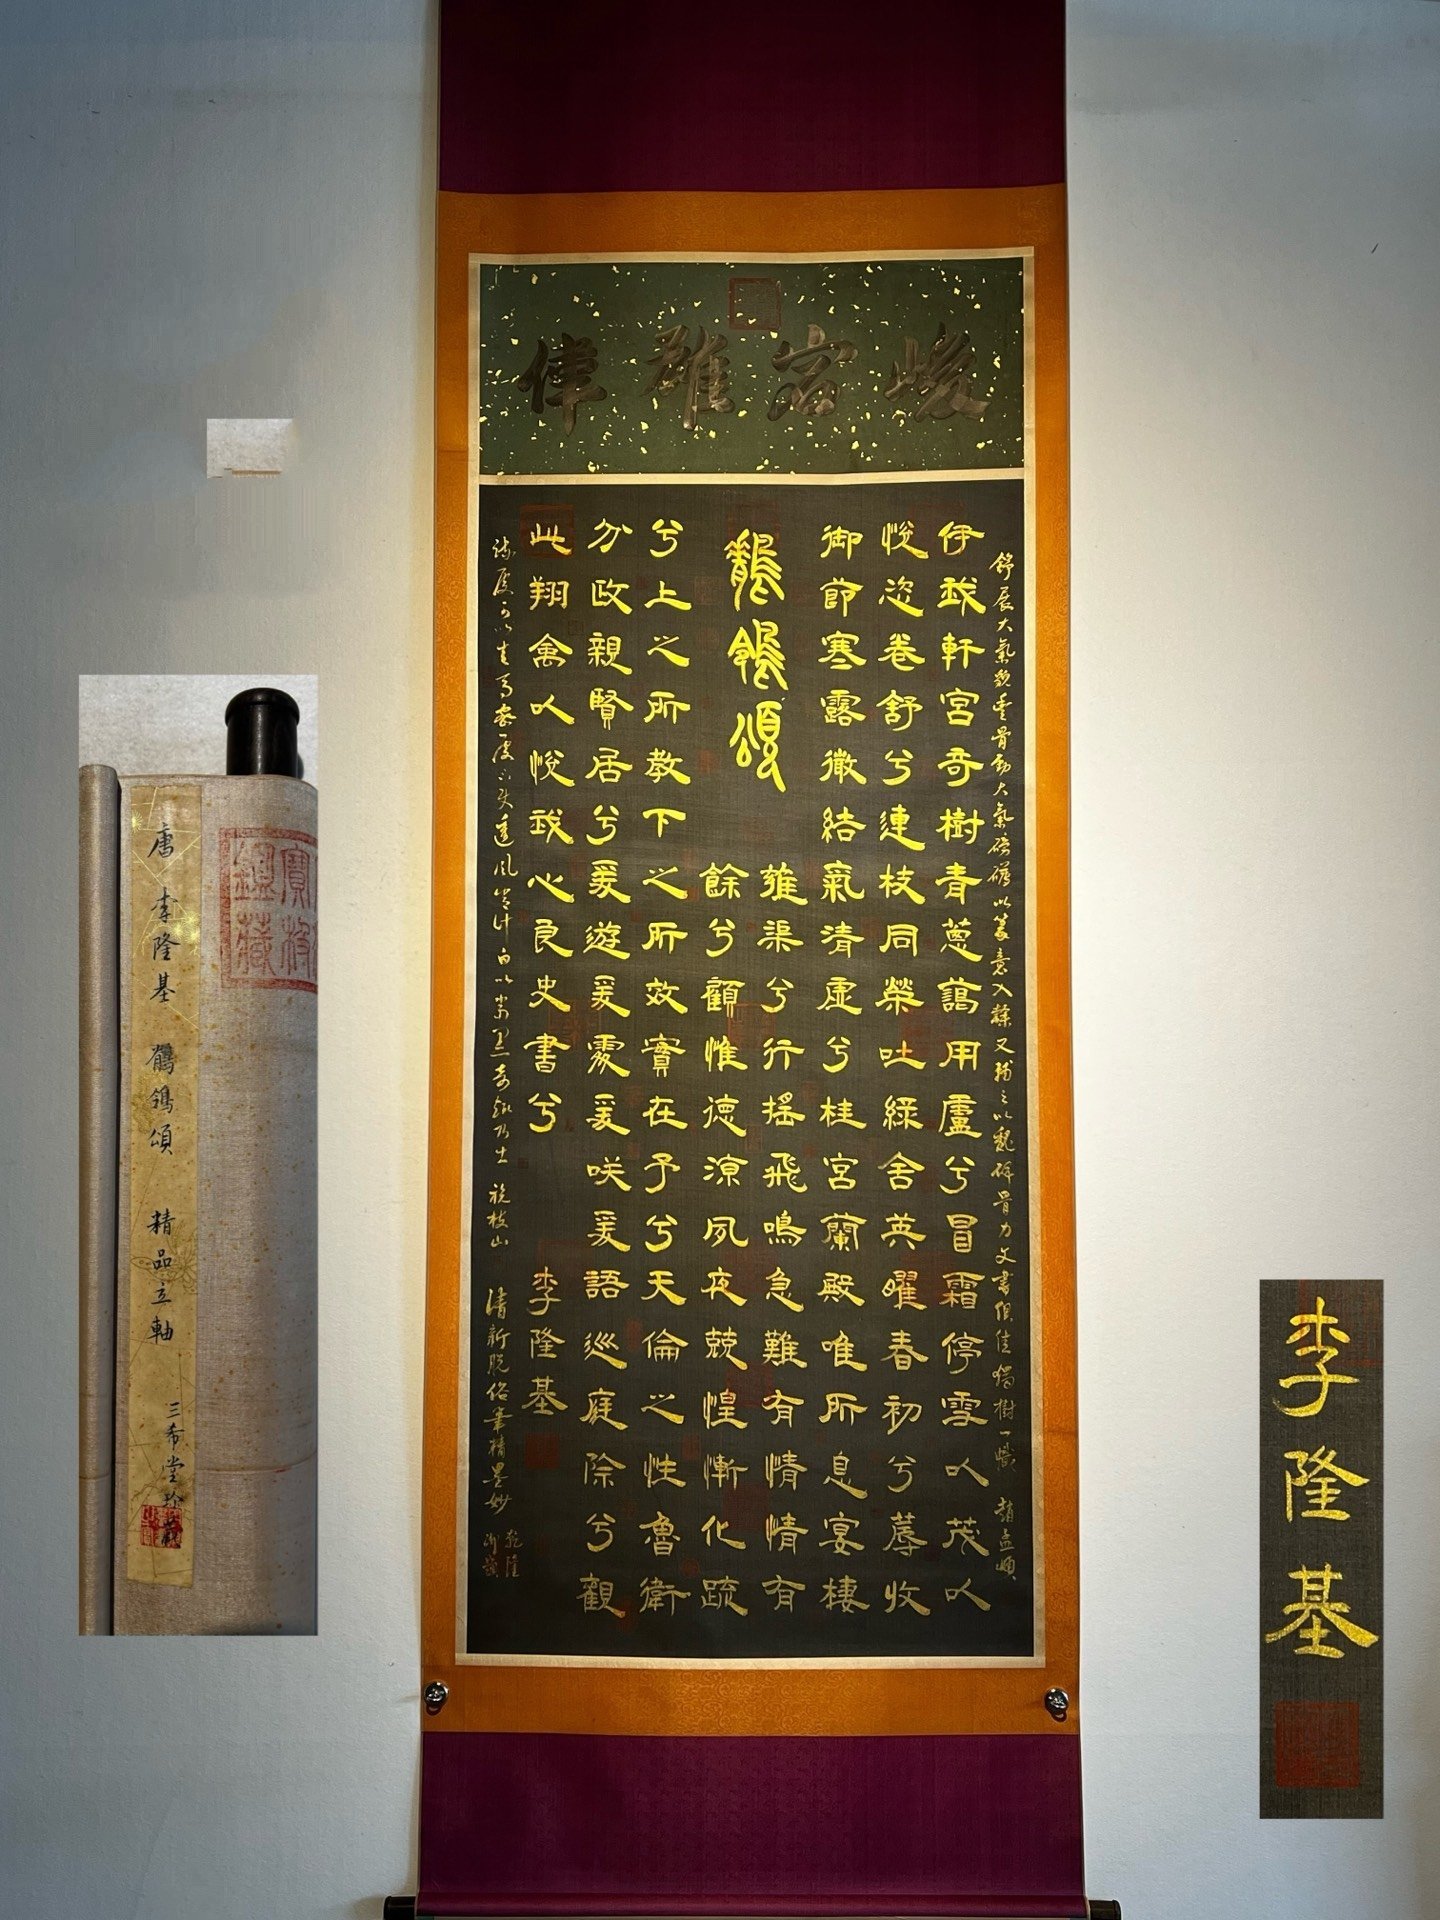 峻宕雄偉
舒展大氣
骨勁大氣磅礴以篆意入隸又稱之以魏碑骨力文書俱佳獨樹一幟 趙孟頫
伊我軒宮奇樹青蔥藹用盧兮冒霜停雪以茂以
悅恣卷舒兮連枝同榮吐綠含英曜春初兮蓐收
御節寒露微結氣清虛兮桂宮蘭殿唯所息宴棲
鶺鴒頌
雝渠兮行搖飛鳴急難有情情有
餘兮顧惟德凉夙夜兢惶慚化疏
兮上之所教下之所效實在予兮天倫之性魯衛
分政親賢居兮爰遊爰處爰咲爰語巡庭除兮觀
此翔禽以悅我心良史書兮 李隆基
疏處可以走馬密處不使透風常計白以當黑奇趣乃出 祝枝山
清新脫俗筆精墨妙 乾隆御題
唐 李隆基 鶺鴒頌 精品立軸
三希堂珍藏
李隆基